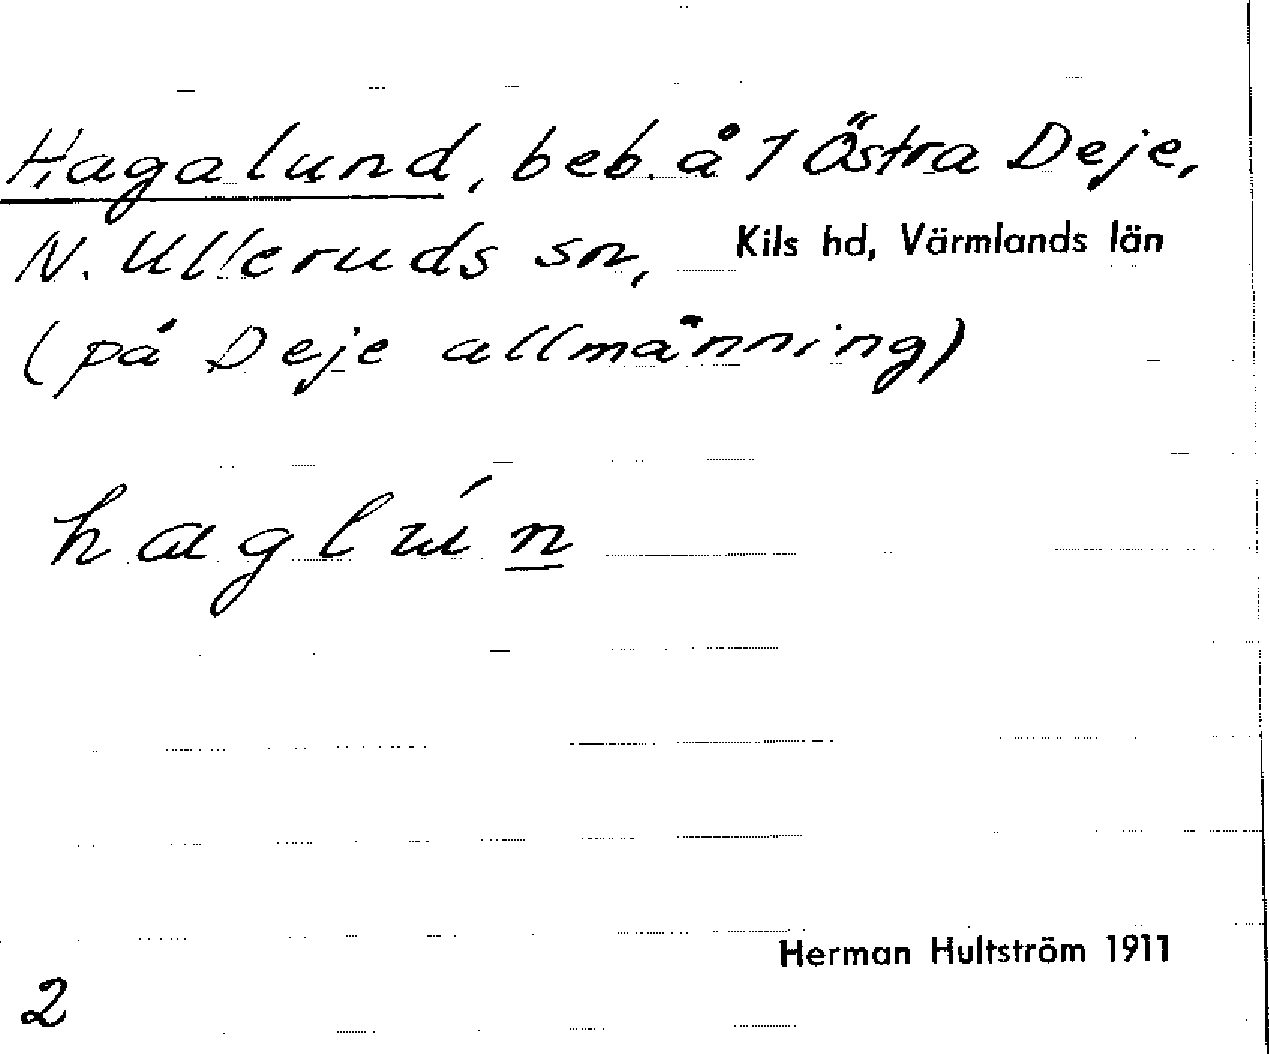 Hagalund, beb. å 1 Östra Deje,
N. Ulleruds sn, Kils hd, Värmlands län
(på Deje allmänning)
haglún
Herman Hultström 1911
2